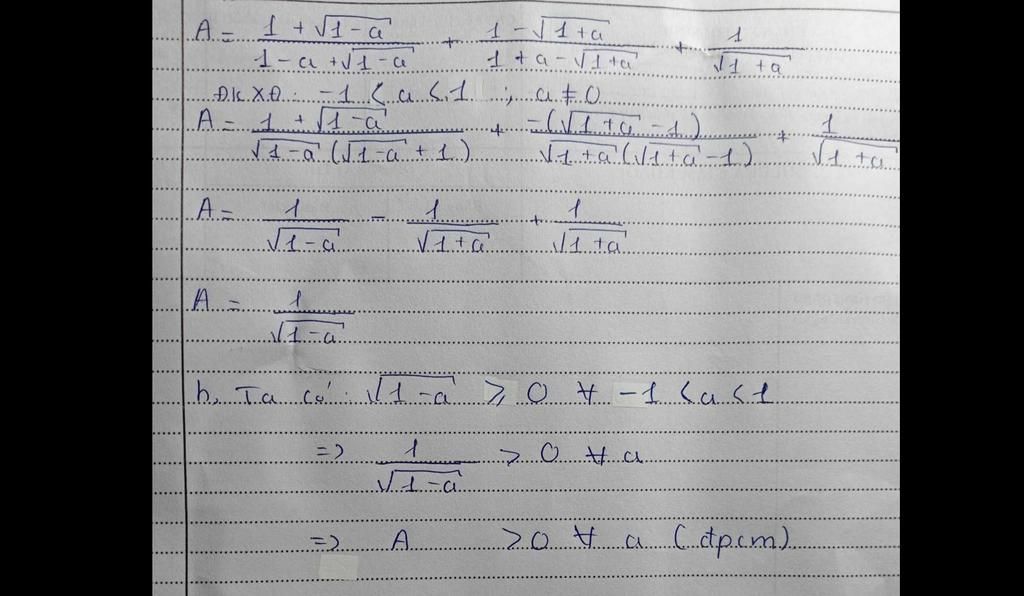 A = \frac{1 + \sqrt{1-a}}{1-a+\sqrt{1-a}} + \frac{1-\sqrt{1+a}}{1+a-\sqrt{1+a}} + \frac{1}{\sqrt{1+a}}
ĐKXĐ: -1 < a < 1 ; a ≠ 0
A = \frac{1 + \sqrt{1-a}}{\sqrt{1-a}(\sqrt{1-a}+1)} + \frac{-(\sqrt{1+a}-1)}{\sqrt{1+a}(\sqrt{1+a}-1)} + \frac{1}{\sqrt{1+a}}
A = \frac{1}{\sqrt{1-a}} - \frac{1}{\sqrt{1+a}} + \frac{1}{\sqrt{1+a}}
A = \frac{1}{\sqrt{1-a}}
b, Ta có: \sqrt{1-a} ≥ 0 ∀ -1 < a < 1
=> \frac{1}{\sqrt{1-a}} > 0 ∀ a
=> A > 0 ∀ a (đpcm)